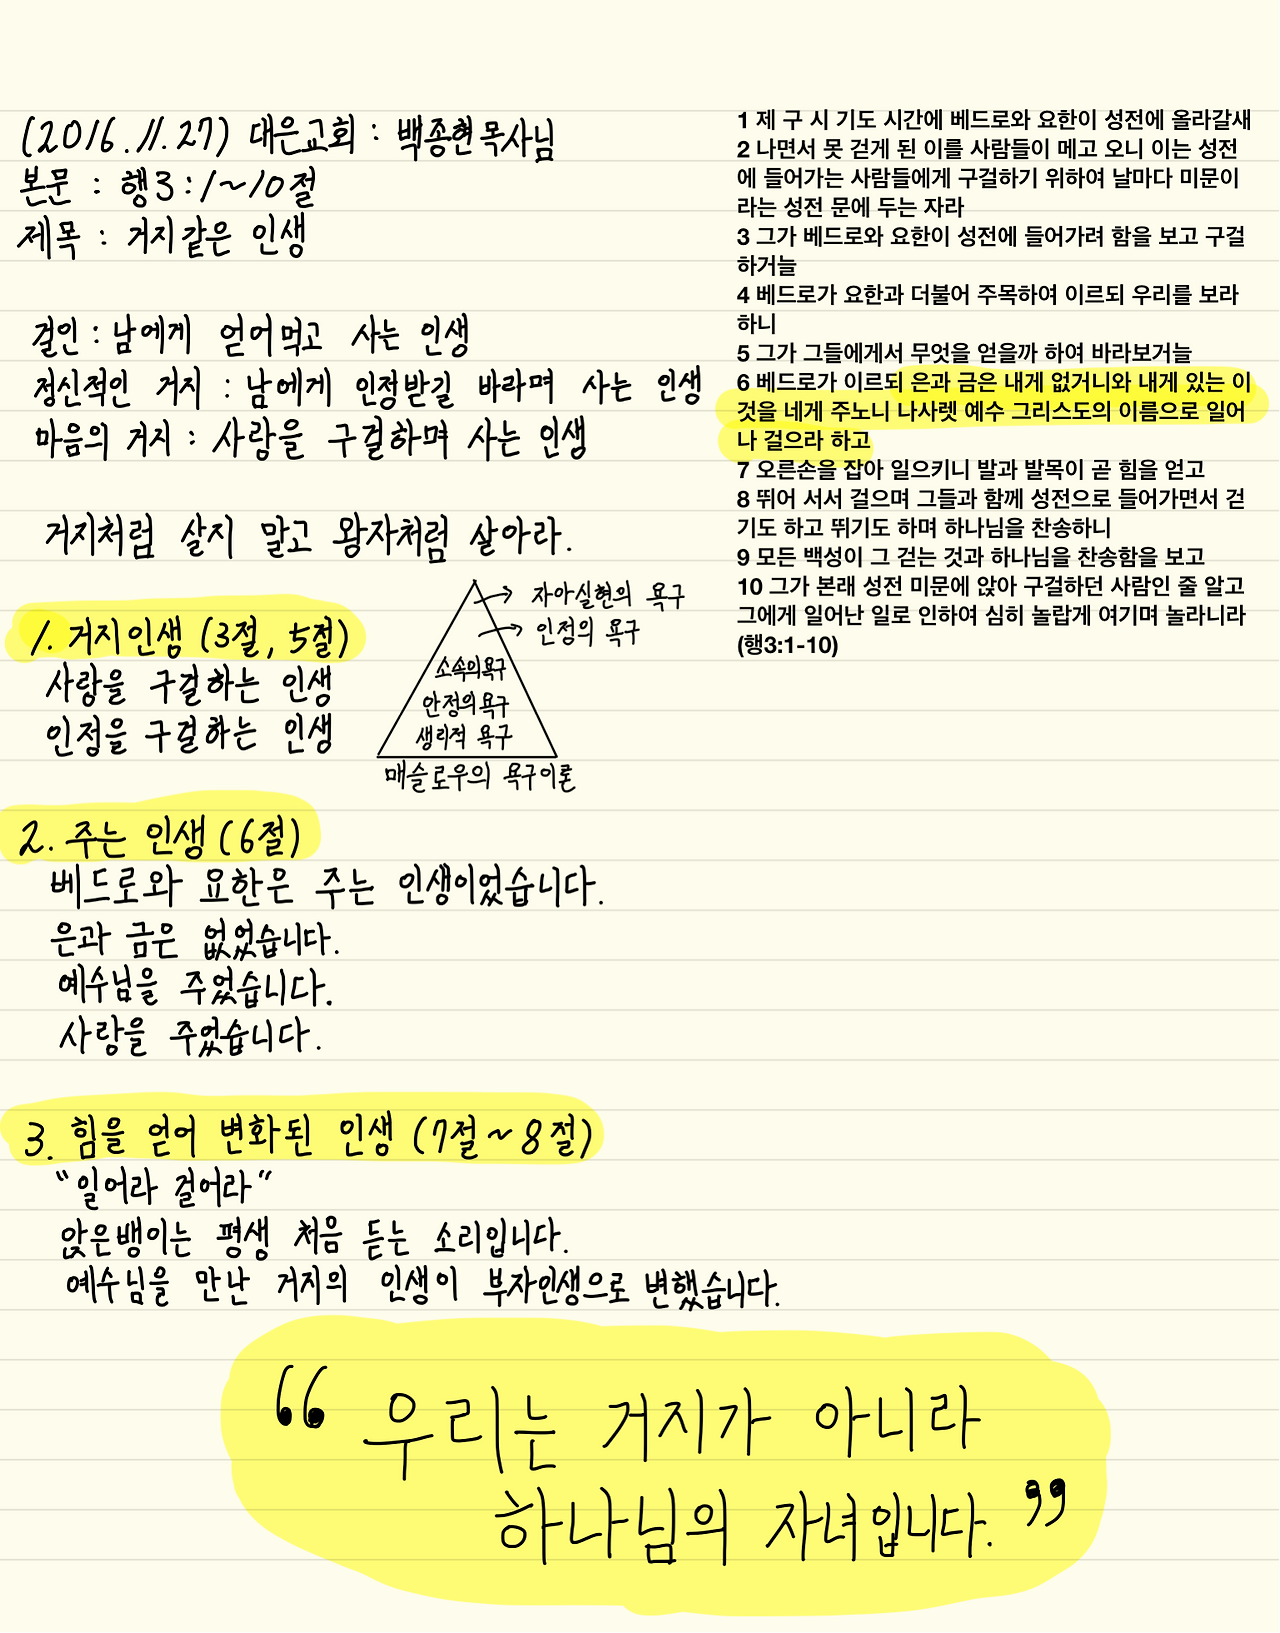 (2016.11.27) 대은교회 : 백종현목사님
본문 : 행3:1~10절
제목 : 거지같은 인생
걸인 : 남에게 얻어먹고 사는 인생
정신적인 거지 : 남에게 인정받길 바라며 사는 인생
마음의 거지 : 사랑을 구걸하며 사는 인생
거지처럼 살지 말고 왕자처럼 살아라.
1. 거지인생 (3절, 5절)
사랑을 구걸하는 인생
인정을 구걸하는 인생
자아실현의 욕구
인정의 욕구
소속의욕구
안정의욕구
생리적 욕구
매슬로우의 욕구이론
2. 주는 인생 (6절)
베드로와 요한은 주는 인생이었습니다.
은과 금은 없었습니다.
예수님을 주었습니다.
사랑을 주었습니다.
3. 힘을 얻어 변화된 인생 (7절~8절)
"일어라 걸어라"
앉은뱅이는 평생 처음 듣는 소리입니다.
예수님을 만난 거지의 인생이 부자인생으로 변했습니다.
"우리는 거지가 아니라
하나님의 자녀입니다."
1 제 구 시 기도 시간에 베드로와 요한이 성전에 올라갈새
2 나면서 못 걷게 된 이를 사람들이 메고 오니 이는 성전
에 들어가는 사람들에게 구걸하기 위하여 날마다 미문이
라는 성전 문에 두는 자라
3 그가 베드로와 요한이 성전에 들어가려 함을 보고 구걸
하거늘
4 베드로가 요한과 더불어 주목하여 이르되 우리를 보라
하니
5 그가 그들에게서 무엇을 얻을까 하여 바라보거늘
6 베드로가 이르되 은과 금은 내게 없거니와 내게 있는 이
것을 네게 주노니 나사렛 예수 그리스도의 이름으로 일어
나 걸으라 하고
7 오른손을 잡아 일으키니 발과 발목이 곧 힘을 얻고
8 뛰어 서서 걸으며 그들과 함께 성전으로 들어가면서 걷
기도 하고 뛰기도 하며 하나님을 찬송하니
9 모든 백성이 그 걷는 것과 하나님을 찬송함을 보고
10 그가 본래 성전 미문에 앉아 구걸하던 사람인 줄 알고
그에게 일어난 일로 인하여 심히 놀랍게 여기며 놀라니라
(행3:1-10)